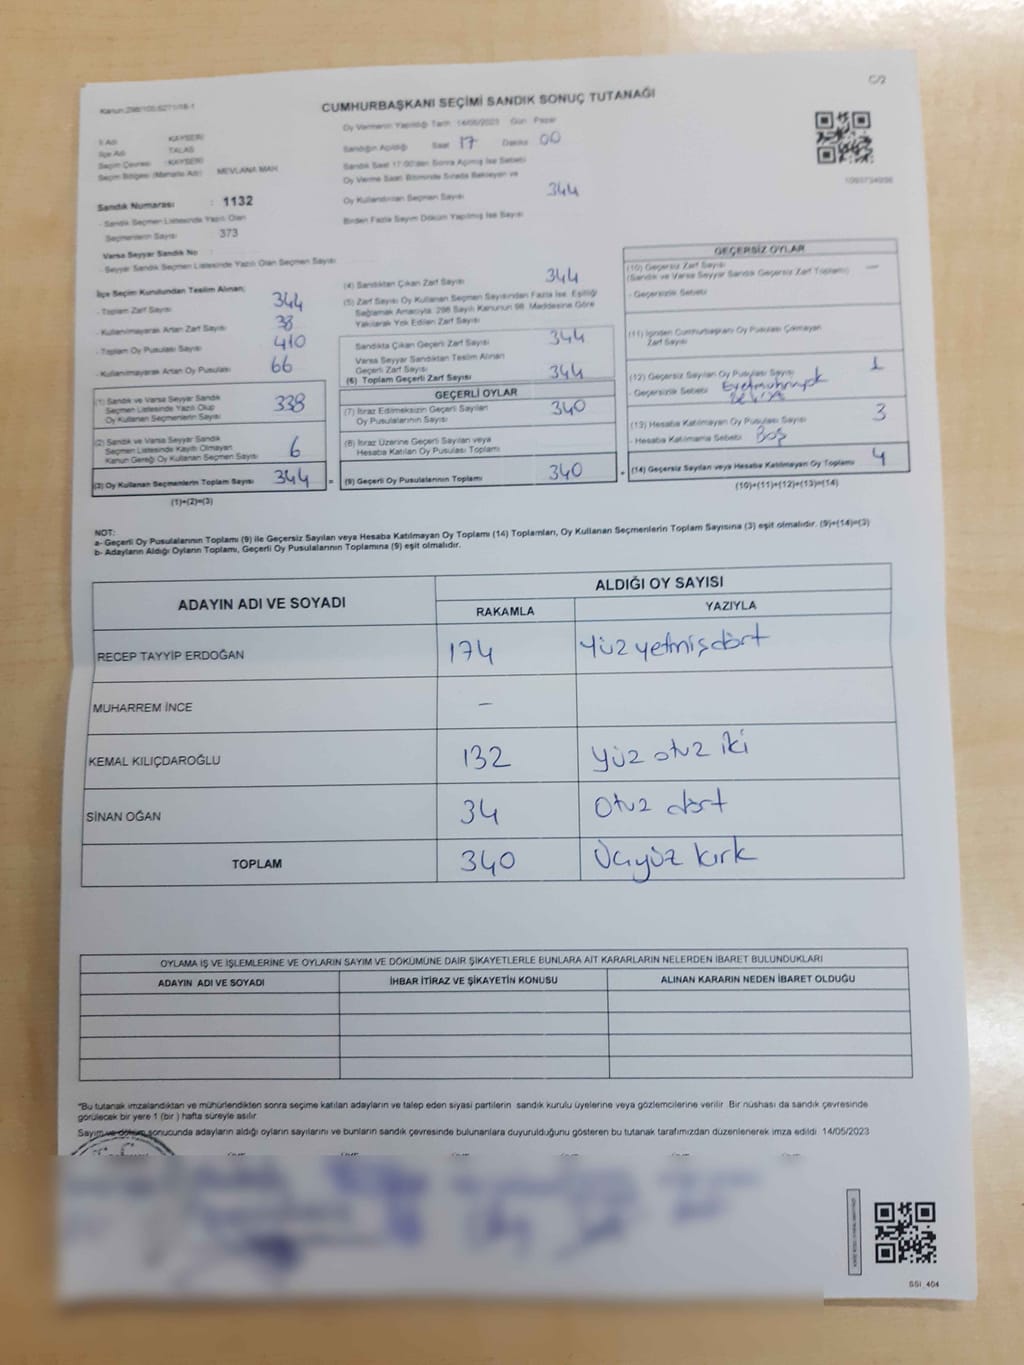 C/2
Kanun:298/105,6271/18-1
CUMHURBAŞKANI SEÇİMİ SANDIK SONUÇ TUTANAĞI
İl Adı : KAYSERİ
İlçe Adı : TALAS
Seçim Çevresi : KAYSERİ
Seçim Bölgesi (Mahalle Adı) : MEVLANA MAH
Sandık Numarası : 1132
- Sandık Seçmen Listesinde Yazılı Olan
Seçmenlerin Sayısı 373
Varsa Seyyar Sandık No :
- Seyyar Sandık Seçmen Listesinde Yazılı Olan Seçmen Sayısı
Oy Vermenin Yapıldığı Tarih 14/05/2023 Gün Pazar
Sandığın Açıldığı Saat 17 Dakika 00
Sandık Saat 17:00'den Sonra Açılmış İse Sebebi
Oy Verme Saati Bitiminde Sırada Bekleyen ve
Oy Kullandırılan Seçmen Sayısı 344
Birden Fazla Sayım Döküm Yapılmış İse Sayısı
İlçe Seçim Kurulundan Teslim Alınan;
- Toplam Zarf Sayısı 344
- Kullanılmayarak Artan Zarf Sayısı 38
- Toplam Oy Pusulası Sayısı 410
- Kullanılmayarak Artan Oy Pusulası 66
(1) Sandık ve Varsa Seyyar Sandık
Seçmen Listesinde Yazılı Olup
Oy Kullanan Seçmen Sayısı 338
(2) Sandık ve Varsa Seyyar Sandık
Seçmen Listesinde Kayıtlı Olmayan
Kanun Gereği Oy Kullanan Seçmen Sayısı 6
(3) Oy Kullanan Seçmenlerin Toplam Sayısı 344
(1)+(2)=(3)
(4) Sandıktan Çıkan Zarf Sayısı 344
(5) Zarf Sayısı Oy Kullanan Seçmen Sayısından Fazla İse, Eşitliği
Sağlamak Amacıyla, 298 Sayılı Kanunun 98. Maddesine Göre
Yakılarak Yok Edilen Zarf Sayısı
Sandıkta Çıkan Geçerli Zarf Sayısı 344
Varsa Seyyar Sandıktan Teslim Alınan
Geçerli Zarf Sayısı
(6) Toplam Geçerli Zarf Sayısı 344
GEÇERLİ OYLAR
(7) İtiraz Edilmeksizin Geçerli Sayılan
Oy Pusulalarının Sayısı 340
(8) İtiraz Üzerine Geçerli Sayılan veya
Hesaba Katılan Oy Pusulası Toplamı
= (9) Geçerli Oy Pusulalarının Toplamı 340
GEÇERSİZ OYLAR
(10) Geçersiz Zarf Sayısı
(Sandık ve Varsa Seyyar Sandık Geçersiz Zarf Toplamı) —
- Geçersizlik Sebebi
(11) İçinden Cumhurbaşkanı Oy Pusulası Çıkmayan
Zarf Sayısı
(12) Geçersiz Sayılan Oy Pusulası Sayısı 1
- Geçersizlik Sebebi
(13) Hesaba Katılmayan Oy Pusulası Sayısı 3
- Hesaba Katılmama Sebebi Boş
+ (14) Geçersiz Sayılan veya Hesaba Katılmayan Oy Toplamı 4
(10)+(11)+(12)+(13)=(14)
NOT:
a- Geçerli Oy Pusulalarının Toplamı (9) ile Geçersiz Sayılan veya Hesaba Katılmayan Oy Toplamı (14) Toplamları, Oy Kullanan Seçmenlerin Toplam Sayısına (3) eşit olmalıdır. (9)+(14)=(3)
b- Adayların Aldığı Oyların Toplamı, Geçerli Oy Pusulalarının Toplamına (9) eşit olmalıdır.
ADAYIN ADI VE SOYADI ALDIĞI OY SAYISI
RAKAMLA YAZIYLA
RECEP TAYYİP ERDOĞAN 174 Yüz yetmişdört
MUHARREM İNCE –
KEMAL KILIÇDAROĞLU 132 Yüz otuz iki
SİNAN OĞAN 34 Otuz dört
TOPLAM 340 Üçyüz kırk
OYLAMA İŞ VE İŞLEMLERİNE VE OYLARIN SAYIM VE DÖKÜMÜNE DAİR ŞİKAYETLERLE BUNLARA AİT KARARLARIN NELERDEN İBARET BULUNDUKLARI
ADAYIN ADI VE SOYADI İHBAR İTİRAZ VE ŞİKAYETİN KONUSU ALINAN KARARIN NEDEN İBARET OLDUĞU
*Bu tutanak imzalandıktan ve mühürlendikten sonra seçime katılan adayların ve talep eden siyasi partilerin sandık kurulu üyelerine veya gözlemcilerine verilir. Bir nüshası da sandık çevresinde
görülecek bir yere 1 (bir ) hafta süreyle asılır
Sayım ve döküm sonucunda adayların aldığı oyların sayılarını ve bunların sandık çevresinde bulunanlara duyurulduğunu gösteren bu tutanak tarafımızdan düzenlenerek imza edildi 14/05/2023
SSI_404